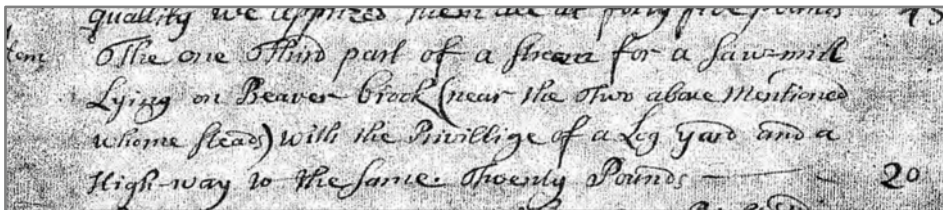 quallity we apprized them all at forty five pounds 45
Item The one Third part of a stream for a saw-mill
Lying on Beaver brook (near the Two above Mentioned
whome steads) with the Privillige of a Log yard and a
High-way to the same. Twenty Pounds — — 20